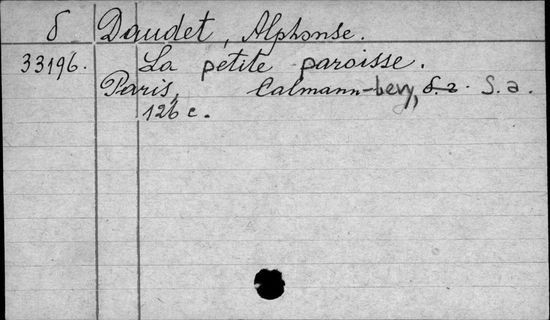 δ Daudet, Alphonse.
33196. La petite paroisse.
Paris, Calmann-Levy, s.a. S.a.
126 c.